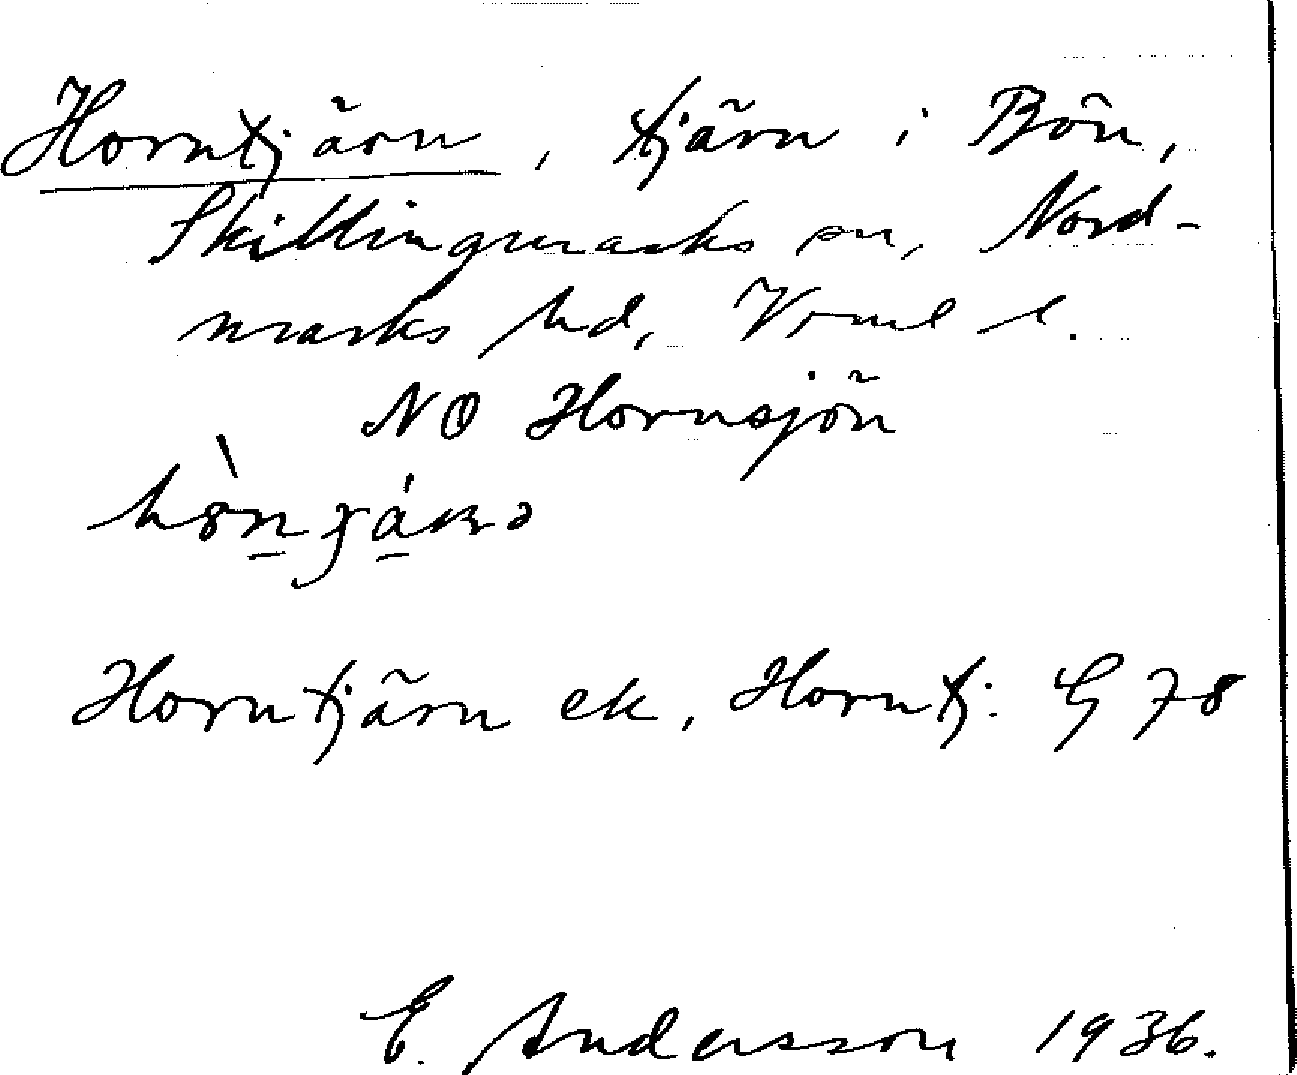 Horntjärn, tjärn i Bön,
Skillingmarks sn, Nord-
marks hd, Vrml l.
NO Hornsjön
Horntjärn ek, Horntj. G 78
E. Andersson 1936.